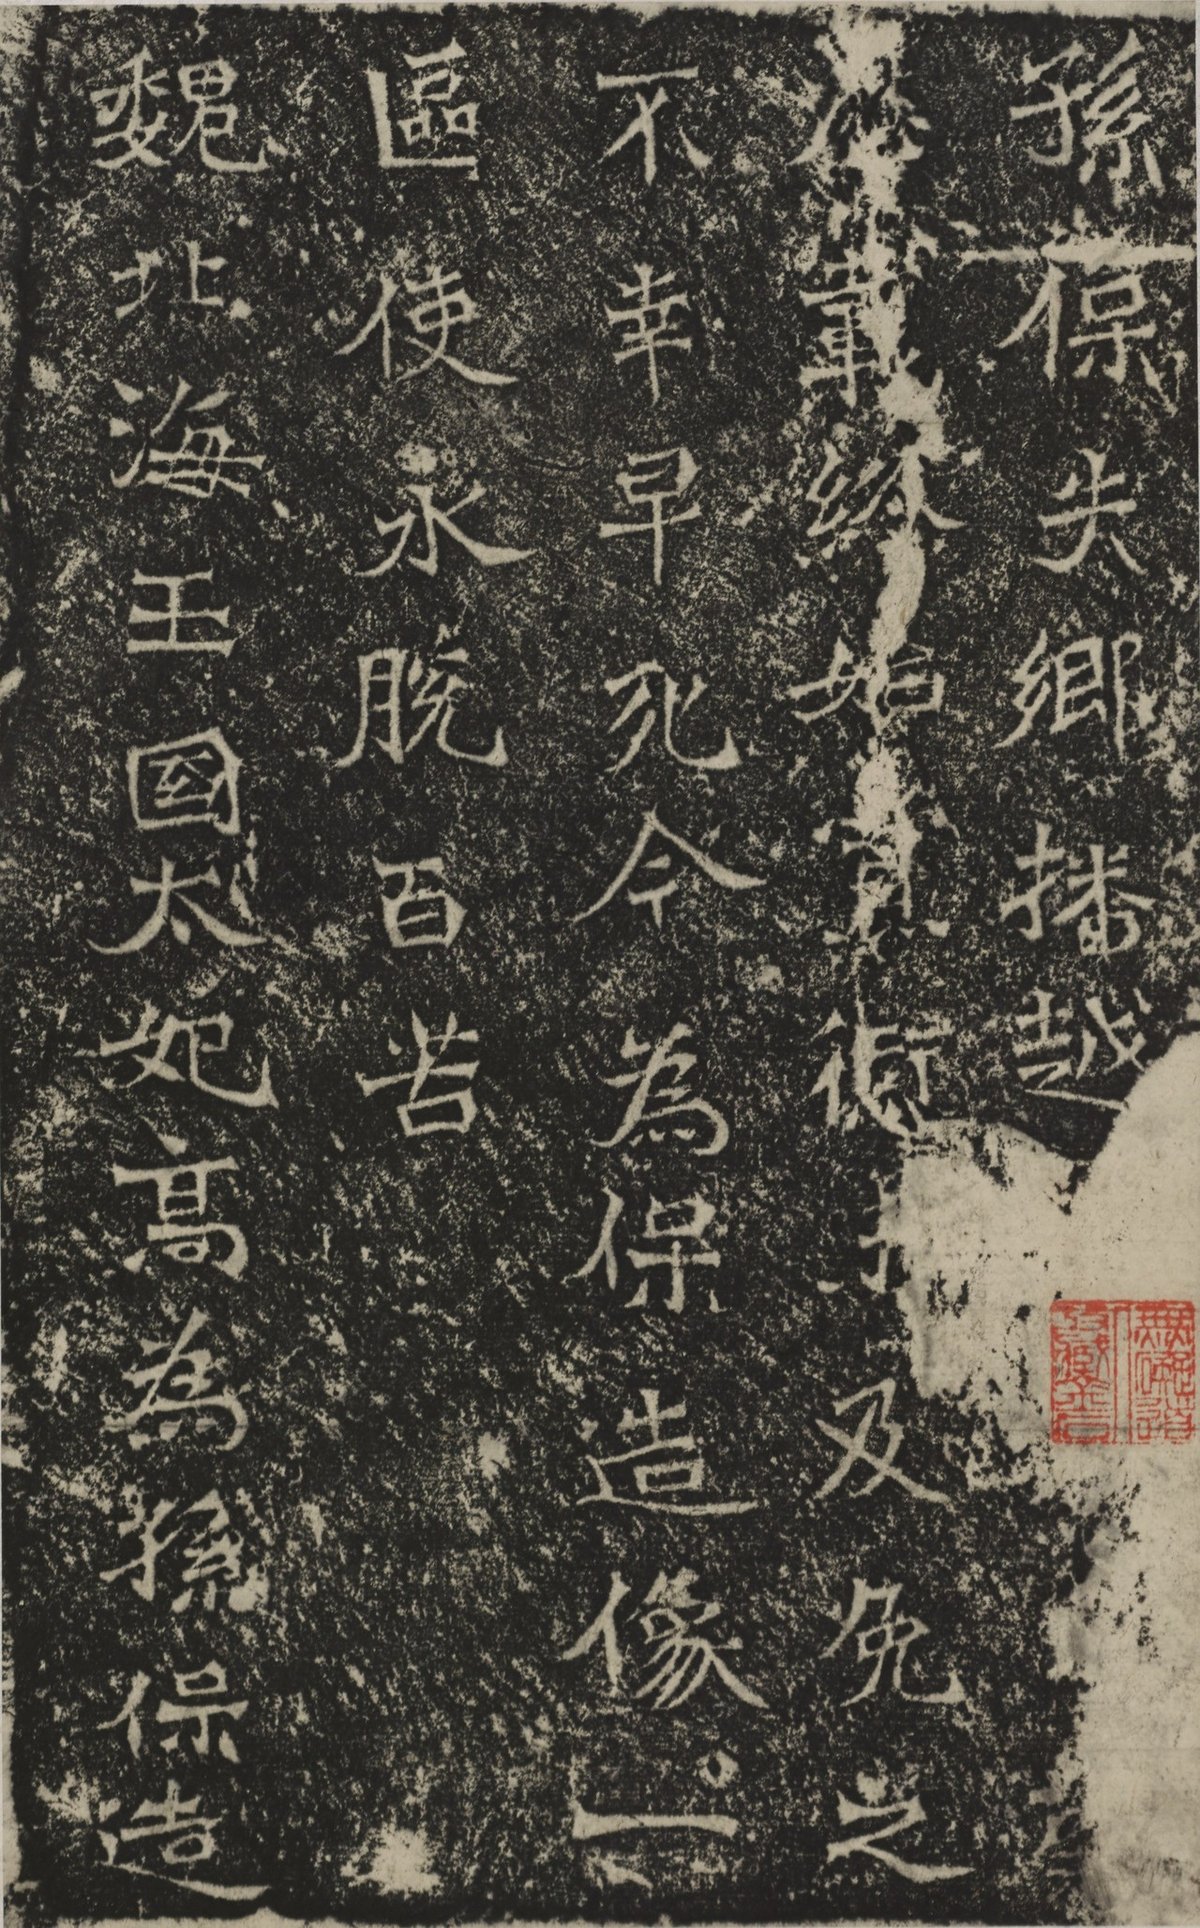 孫保失鄉播越
載始及免之
不幸早死今為保造像一
區使永脫百苦
魏北海王國太妃高為孫保造